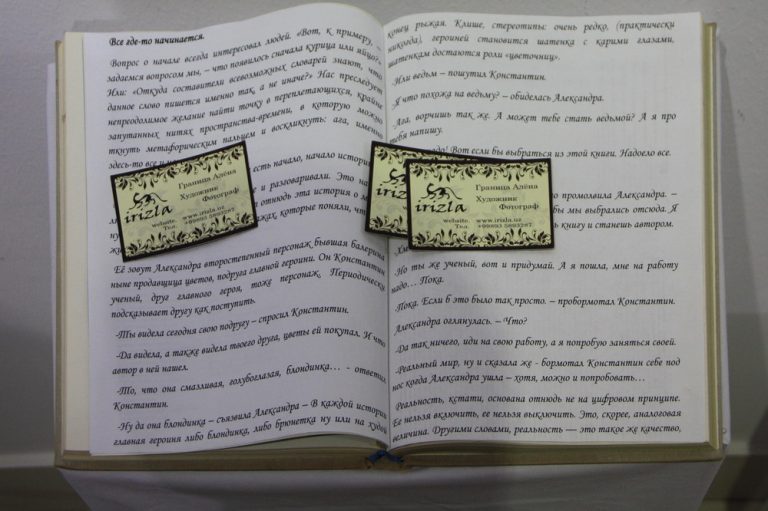 Все где-то начинается.
Вопрос о начале всегда интересовал людей. «Вот, к примеру, –
задаемся вопросом мы, – что появилось сначала курица или яйцо?»
Или: «Откуда составители всевозможных словарей знают, что
данное слово пишется именно так, а не иначе?» Нас преследует
непреодолимое желание найти точку в переплетающихся, крайне
запутанных нитях пространства-времени, в которую можно
ткнуть метафорическим пальцем и воскликнуть: ага, именно
здесь-то все и
есть начало, начало истории
и разговаривали. Это на
отнюдь эта история о
которые поняли, что
Её зовут Александра второстепенный персонаж бывшая балерина
ныне продавщица цветов, подруга главной героини. Он Константин
ученый, друг главного героя, тоже персонаж. Периодически
подсказывает другу как поступить.
-Ты видела сегодня свою подругу – спросил Константин.
-Да видела, а также видела твоего друга, цветы ей покупал. И что
автор в ней нашел.
-То, что она смазливая, голубоглазая, блондинка… - ответил
Константин.
-Ну да она блондинка – съязвила Александра – В каждой истории
главная героиня либо блондинка, либо брюнетка ну или на худой
Граница Алёна
Художник
Фотограф
irizla
website. www.irizla.uz
Тел. +99893 5893287
конец рыжая. Клише, стереотипы: очень редко, (практически
никогда), героиней становится шатенка с карими глазами,
шатенкам достаются роли «цветочниц».
-Или ведьм – пошутил Константин.
-Я что похожа на ведьму? – обиделась Александра.
-Ага, ворчишь так же. А может тебе стать ведьмой? А я про
тебя напишу.
Вот если бы выбраться из этой книги. Надоело все.
промолвила Александра. –
бы мы выбрались отсюда. Я
книгу и станешь автором.
-Но ты же ученый, вот и придумай. А я пошла, мне на работу
надо… Пока.
-Пока. Если б это было так просто. – пробормотал Константин.
Александра оглянулась. – Что?
-Да так ничего, иди на свою работу, а я попробую заняться своей.
-Реальный мир, ну и сказала же - бормотал Константин себе под
нос когда Александра ушла – хотя, можно и попробовать…
Реальность, кстати, основана отнюдь не на цифровом принципе.
Ее нельзя включить, ее нельзя выключить. Это, скорее, аналоговая
величина. Другими словами, реальность — это такое же качество,
Граница Алёна
Художник
Фотограф
irizla
website. www.irizla.uz
Тел. +99893 5893287